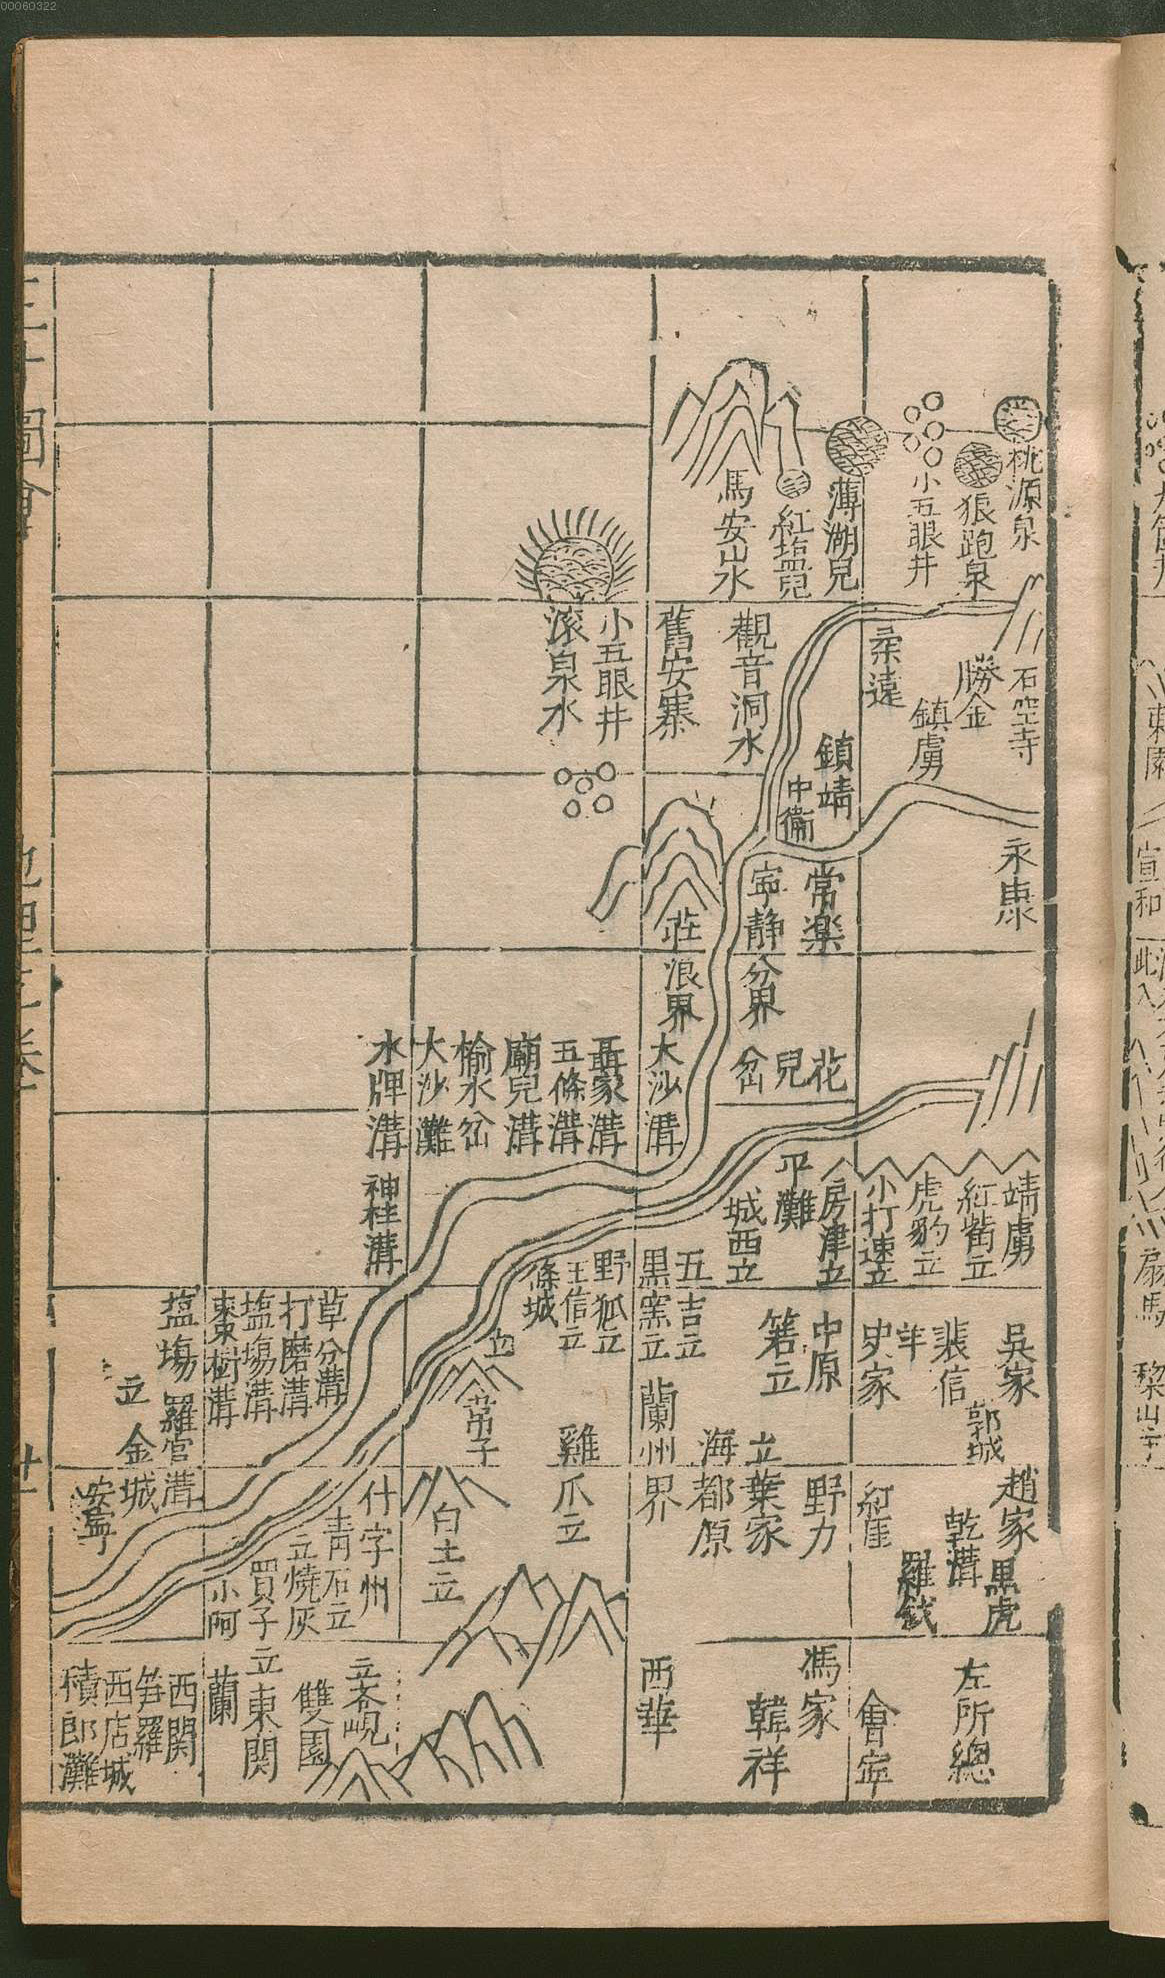 00060322
桃源泉
狼跑泉
小五眼井
薄湖兒
紅塩兒
馬安山水
小五眼井
滚泉水
石空寺
勝金
鎮虜
柔遠
鎮靖
中衞
觀音洞水
舊安寨
永康
常楽
寜静
分界
莊浪界
花兒岔
大沙溝
聶家溝
五條溝
廟兒溝
榆水岔
大沙灘
水牌溝
神柱溝
靖虜
紅觜立
虎豹立
小打速立
房津立
平灘
城西立
五吉立
黒窯立
野狐立
王信立
條城
立
草分溝
打磨溝
塩塲溝
棗樹溝
塩塲
立
羅官溝
金城
安寧
吳家
郭城
裴信
羊
史家
中原
箬立
立
海
蘭州
界
雞爪立
白土立
趙家
黒虎
乾溝
羅錢
紅崖
野力
葉家
都原
什字州
青石立
立燒灰
買子立
小阿
左所總
會寜
馮家
韓祥
西華
雙園
東関
蘭
西関
笋羅
西店城
積郎灘
東園
宣和
此入
扇馬